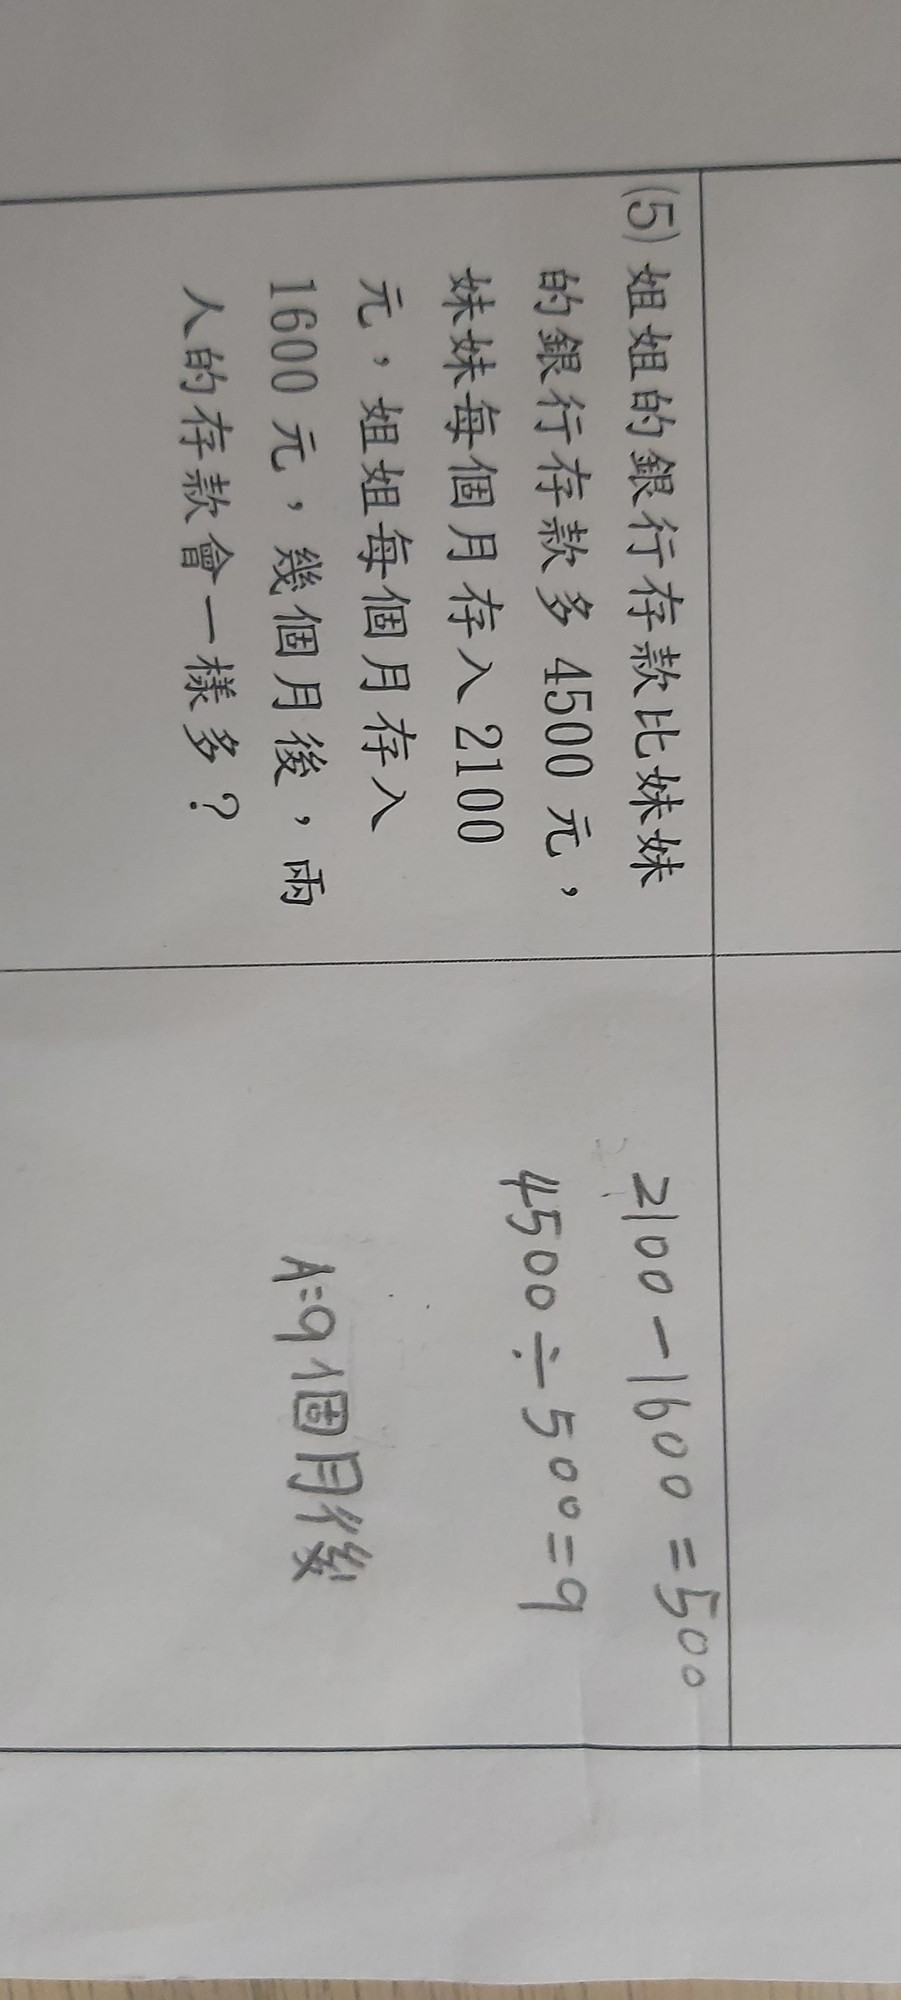 (5) 姐姐的銀行存款比妹妹
的銀行存款多 4500 元，
妹妹每個月存入 2100
元，姐姐每個月存入
1600 元，幾個月後，兩
人的存款會一樣多？
2100－1600=500
4500÷500=9
A:9個月後